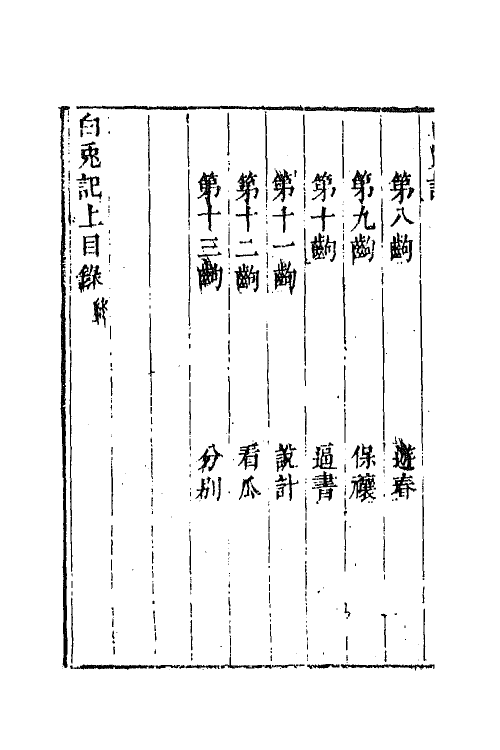 第八齣 遊春
第九齣 保禳
第十齣 逼書
第十一齣 說計
第十二齣 看瓜
第十三齣 分别
白兎記上目錄終